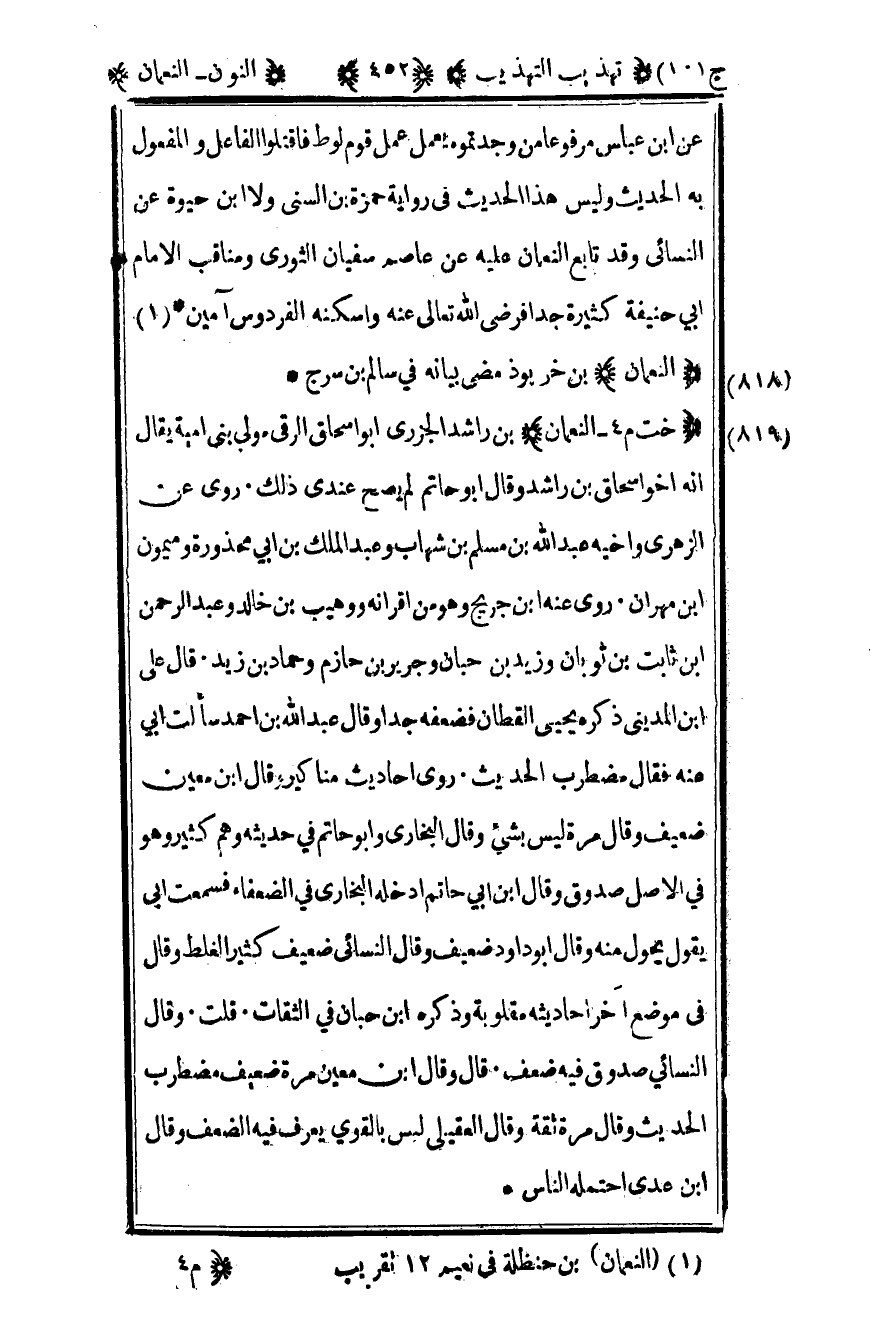 ج (١٠) ﴿ تهذيب التهذيب ﴾ ﴿٤٥٢﴾ ﴿ النون ـ النعمان ﴾
عن ابن عباس مرفوعا من وجدتموه يعمل عمل قوم لوط فاقتلوا الفاعل و المفعول
به الحديث وليس هذا الحديث فى رواية حمزة بن السنى ولا ابن حيوة عن
النسائى وقد تابع النعمان عليه عن عاصم سفيان الثورى ومناقب الامام
ابي حنيفة كثيرة جدا فرضى الله تعالى عنه واسكنه الفردوس آمين * (١)
(٨١٨) ﴿ النعمان ﴾ بن خربوذ مضى بيانه في سالم بن سرج •
(٨١٩) ﴿ خت م ٤ ـ النعمان ﴾ بن راشد الجزرى ابو اسحاق الرقى مولى بنى امية يقال
انه اخو اسحاق بن راشد وقال ابو حاتم لم يصح عندى ذلك · روى عن
الزهرى واخيه عبد الله بن مسلم بن شهاب وعبد الملك بن ابي محذورة وميمون
ابن مهران · روى عنه ابن جريج وهو من اقرانه ووهيب بن خالد وعبد الرحمن
ابن ثابت بن ثوبان وزيد بن حبان وجرير بن حازم وحماد بن زيد · قال على
ابن المدينى ذكره يحيى القطان فضعفه جدا وقال عبد الله بن احمد سألت ابي
عنه فقال مضطرب الحديث · روى احاديث مناكير وقال ابن معين
ضعيف وقال مرة ليس بشئ وقال البخارى وابو حاتم في حديثه وهم كثير وهو
في الاصل صدوق وقال ابن ابي حاتم ادخله البخارى في الضعفاء فسمعت ابى
يقول يحول منه وقال ابو داود ضعيف وقال النسائى ضعيف كثير الغلط وقال
فى موضع آخر احاديثه مقلوبة وذكره ابن حبان في الثقات · قلت · وقال
النسائي صدوق فيه ضعف · قال وقال ابن معين مرة ضعيف مضطرب
الحديث وقال مرة ثقة وقال العقيلى ليس بالقوي يعرف فيه الضعف وقال
ابن عدى احتمله الناس •
(١) (النعمان) بن حنظلة فى نعيم ١٢ تقريب ﴿ م ٤